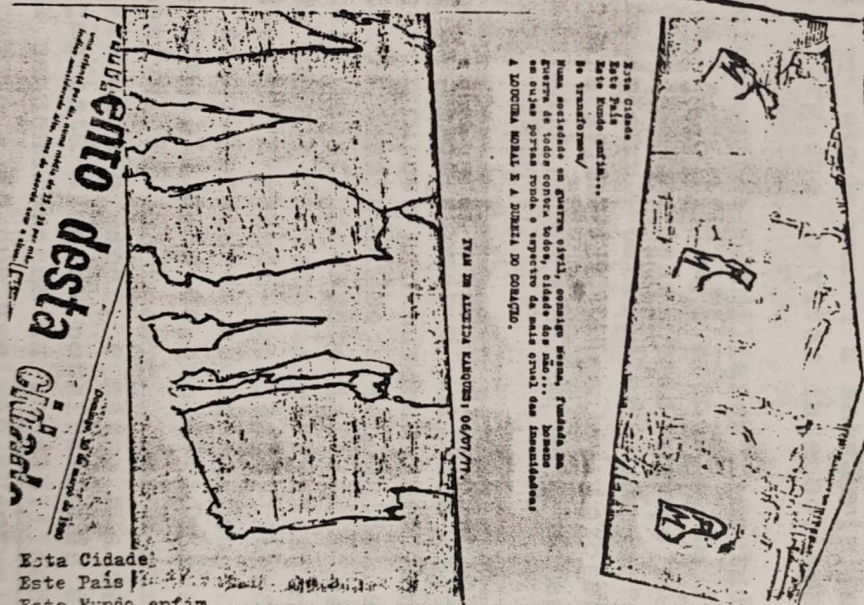 ento desta cidade
Domingo, 30 de março de 1980
Esta Cidade
Este País
Este Mundo enfim...
Se transformou/
Numa sociedade em guerra civil, consigo mesma, fundada na
guerra de todos contra todos, cidade dos não... homens
em cujas portas ronda o espectro da mais cruel das insanidades:
A LOUCURA MORAL E A DUREZA DO CORAÇÃO.
IVAN DE ALMEIDA MARQUES; 06/07/77.
Esta Cidade
Este País
Este Mundo enfim